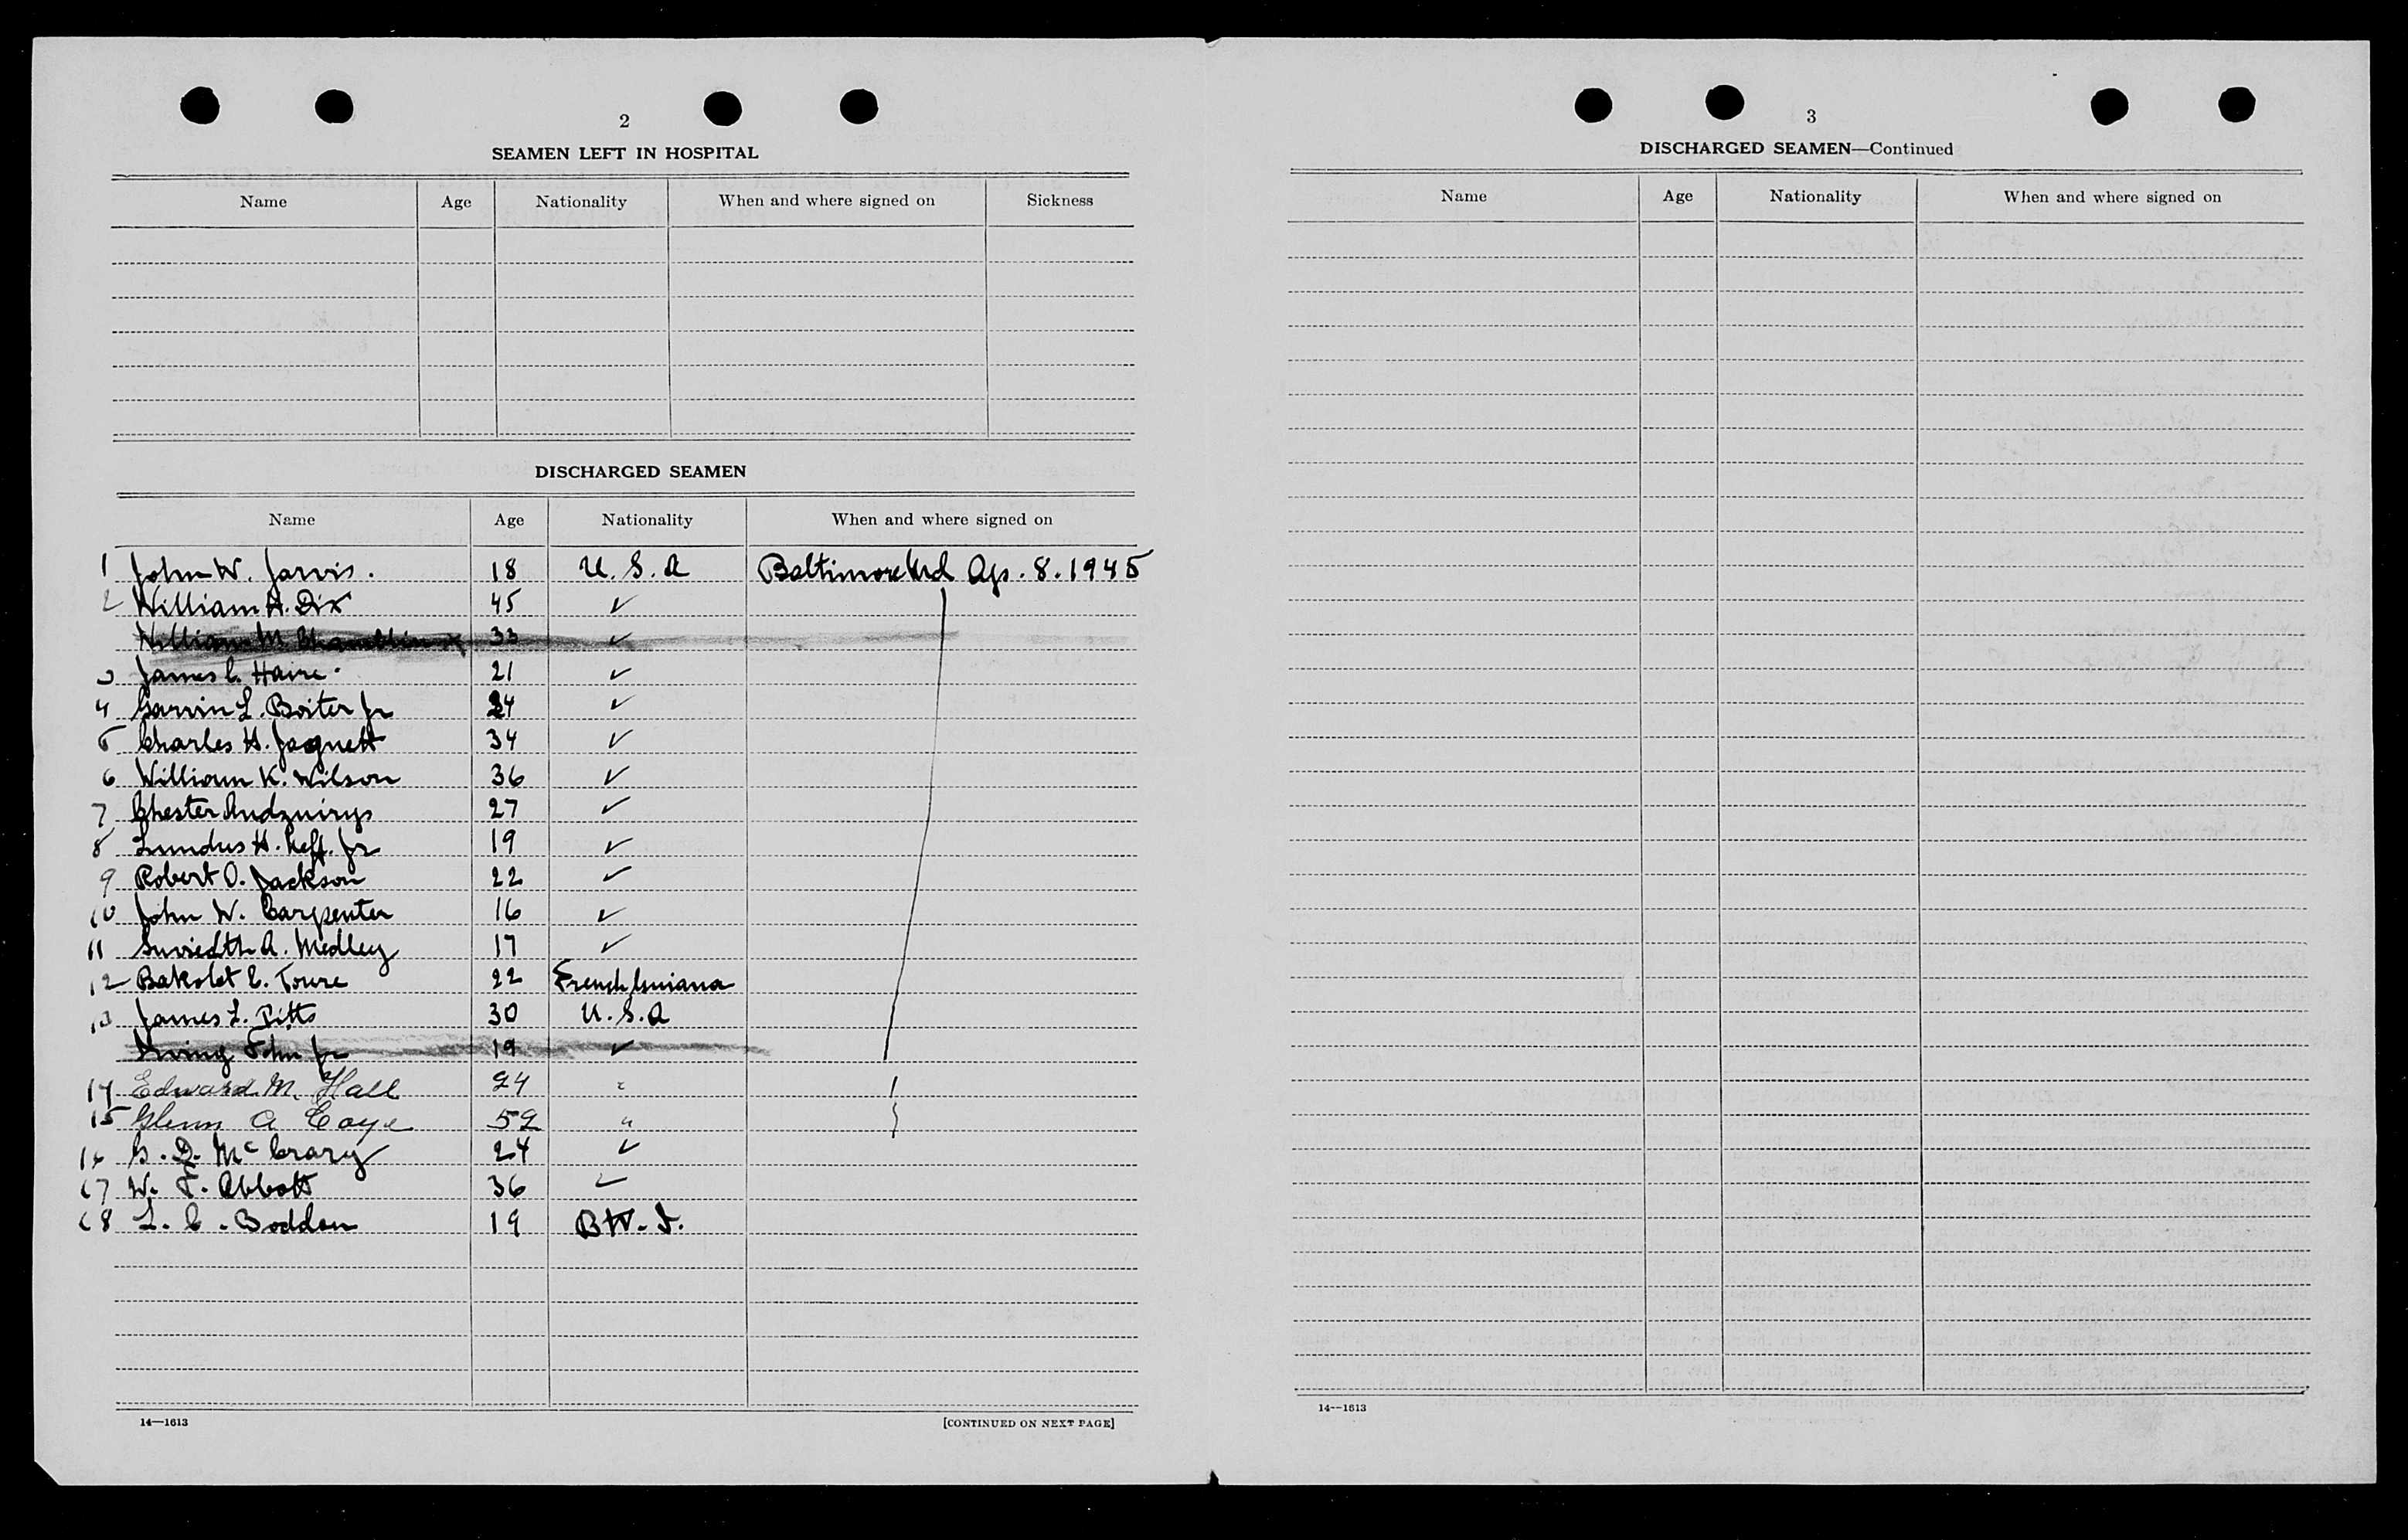 2
SEAMEN LEFT IN HOSPITAL
Name Age Nationality When and where signed on Sickness
DISCHARGED SEAMEN
Name Age Nationality When and where signed on
1 John W. Jarvis. 18 U.S.A Baltimore Md Ap. 8. 1945
2 William H. Dix 45 ✓
William M. 33 ✓
3 James C. Haire. 21 ✓
4 Garvin L. Boiter Jr 24 ✓
5 Charles H. Jaquett 34 ✓
6 William K. Wilson 36 ✓
7 Chester Andzuirys 27 ✓
8 H. Jr 19 ✓
9 Robert O. Jackson 22 ✓
10 John W. Carpenter 16 ✓
11 A. Medley 17 ✓
12 Bakolet E. Toure 22 French Guiana
13 James L. Pitts 30 U.S.A
Irving John Jr 19 ✓
14 Edward M. Hall 24 "
15 Glenn A Coye 52 "
16 G. D. McCrary 24 ✓
17 W. F. Abbott 36 ✓
18 L. C. Bodden 19 B.W.I.
14—1613 [CONTINUED ON NEXT PAGE]
3
DISCHARGED SEAMEN—Continued
Name Age Nationality When and where signed on
14—1613